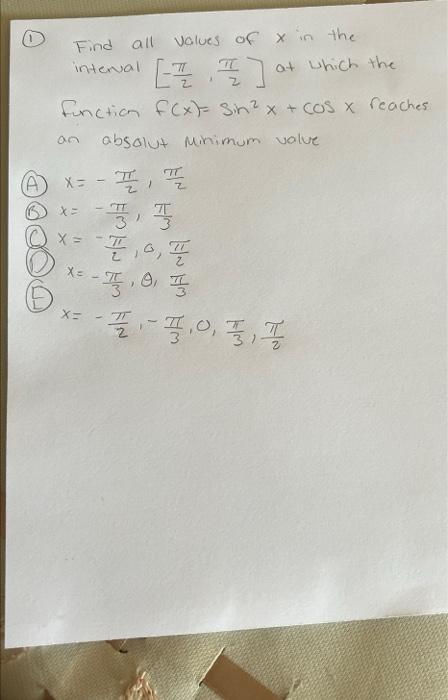 ① Find all values of x in the
interval [-π/2, π/2] at which the
function f(x)= Sin² x + cos x reaches
an absolut minimum value
Ⓐ x= - π/2, π/2
Ⓑ x= - π/3, π/3
Ⓒ x= - π/2, 0, π/2
Ⓓ x= - π/3, 0, π/3
Ⓔ x= - π/2, - π/3, 0, π/3, π/2